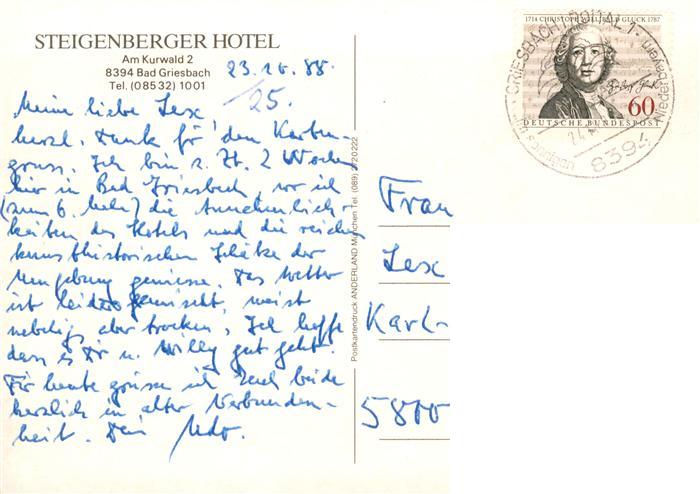 STEIGENBERGER HOTEL
Am Kurwald 2
8394 Bad Griesbach
Tel. (08532) 1001
23.10.88.
/25.
Meine liebe Lex,
herzl. Dank für den Karten-
gruss. Ich bin z. Zt. 2 Wochen
hier in Bad Griesbach, wo ich
(zum 6. mal) die Annehmlich-
keiten des Hotels und die reichen
kunsthistorischen Schätze der
Umgebung geniesse. Das Wetter
ist leider gemischt, meist
neblig, aber trocken. Ich hoffe
dass es Dir u. Willy gut geht.
Für heute grüsse ich Euch beide
herzlich in alter Verbunden-
heit. Dein Udo.
Postkartendruck ANDERLAND München Tel. (089) 2720222
Frau
Lex
Karl-
5800
1714 CHRISTOPH WILLIBALD GLUCK 1787
60
DEUTSCHE BUNDESPOST
GRIESBACH I. ROTTAL 1
Niederbayern
8394